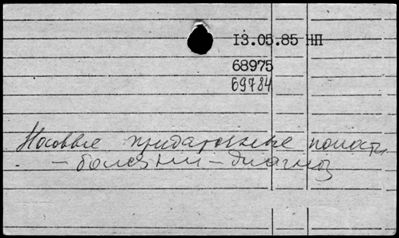 13.05.85 НП
68975
69784
Носовые придаточные полости
– болезни – диагноз